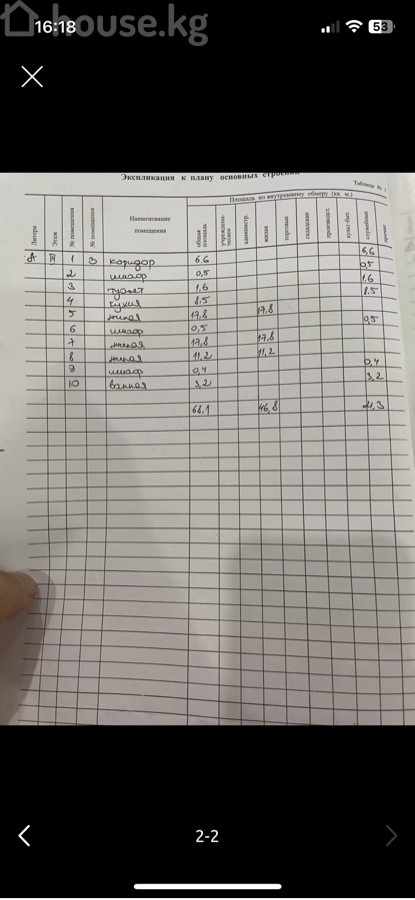 house.kg
16:18
53
Экспликация к плану основных строений
Таблица №
Литера
Этаж
№ помещения
№ помещения
Наименование помещения
Площадь по внутреннему обмеру (кв. м.)
общая площадь
учрежденческое
администр.
жилая
торговые
складские
производст.
культ-быт.
служебные
прочие
А III 1 3 коридор 6.6 6,6
2 шкаф 0,5 0,5
3 туалет 1,6 1.6
4 кухня 8.5 8.5
5 жилая 17,8 17.8
6 шкаф 0,5 0,5
7 жилая 17,8 17,8
8 жилая 11,2 11,2
9 шкаф 0,4 0,4
10 ванная 3,2 3,2
68,1 46,8 21,3
2-2